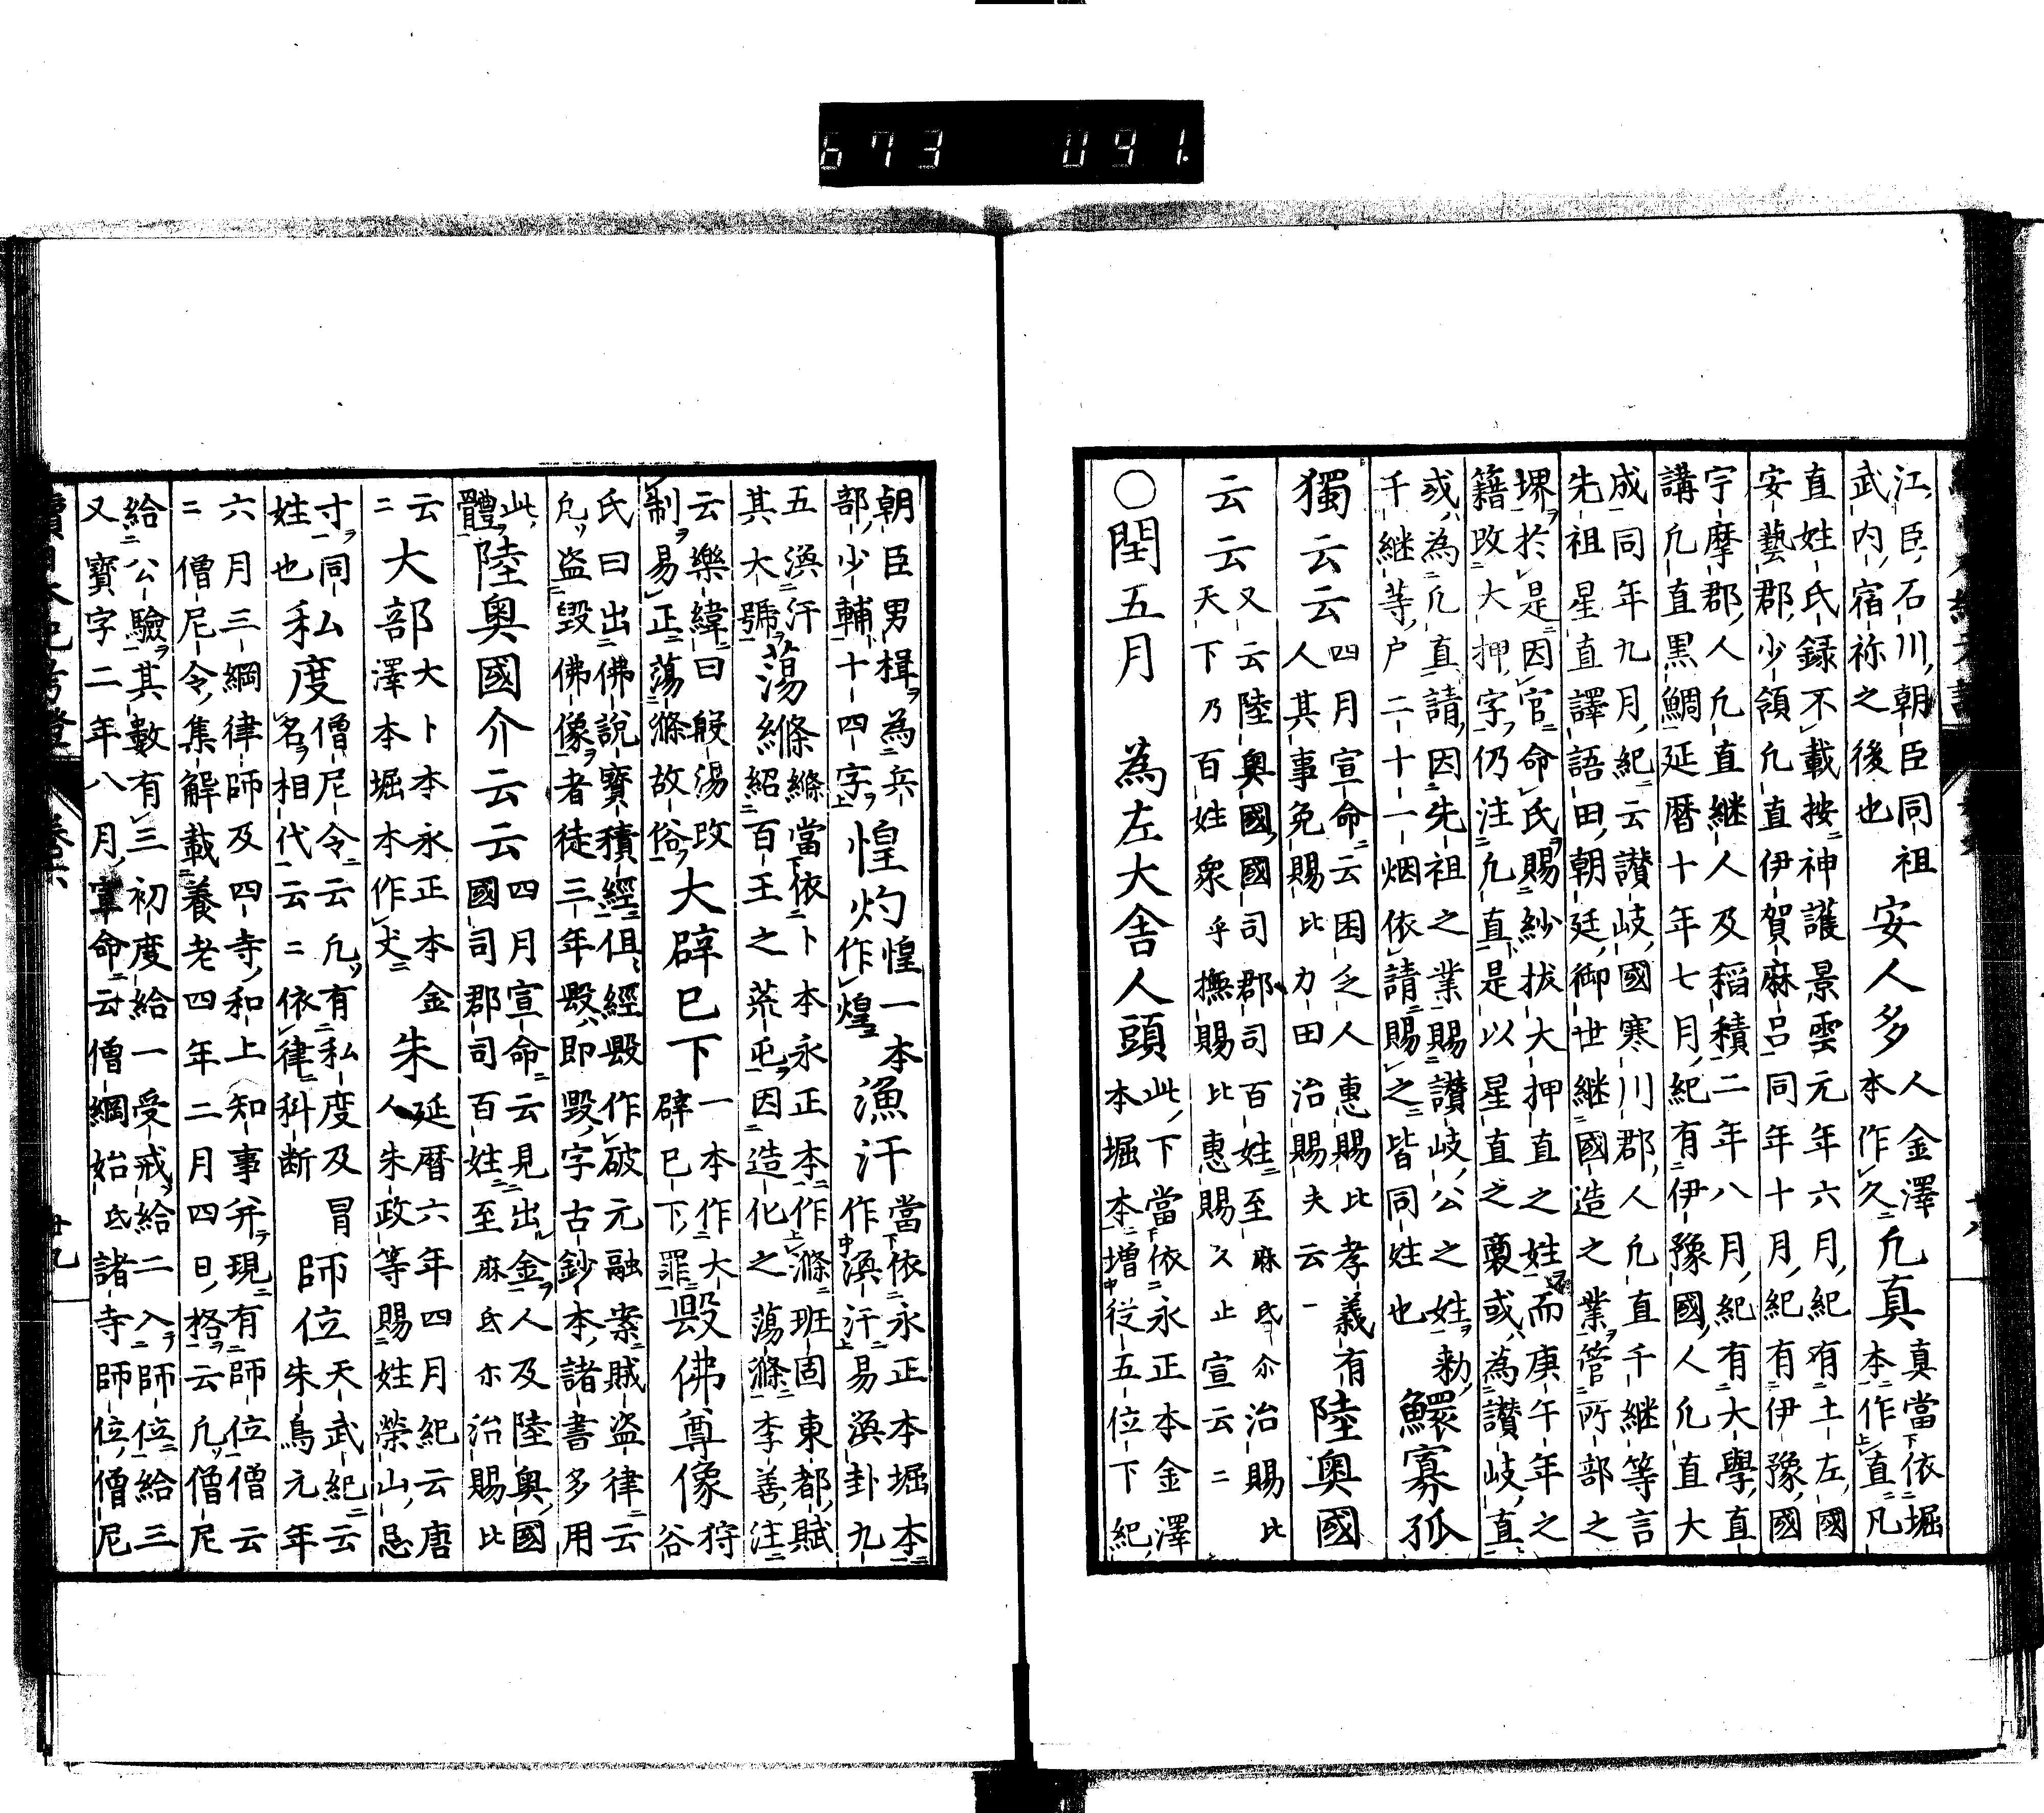 673 091.
江臣石川朝臣同祖
武内宿祢之後也
安人多
人金澤
本作久
凡真
真當依堀
本作直凡
直姓氏録不載按神護景雲元年六月紀有土左國
安藝郡少領凡直伊賀麻呂同年十月紀有伊豫國
宇摩郡人凡直継人及稻積二年八月紀有大學直
講凡直黒鯛延暦十年七月紀有伊豫國人凡直大
成同年九月紀云讃岐國寒川郡人凡直千継等言
先祖星直譯語田朝廷御世継國造之業管所部之
堺於是因官命氏賜紗抜大押直之姓而庚午年之
籍改大押字仍注凡直是以星直之裔或為讃岐直
或為凡直請因先祖之業賜讃岐公之姓勅
千継等戸二十一烟依請賜之皆同姓也
鰥寡孤
獨云云
四月宣命云困乏人惠賜比孝義有
人其事免賜比力田治賜夫云一
陸奥國
云云
又云陸奥國國司郡司百姓至麻氐尓治賜比
天下乃百姓衆乎撫賜比惠賜久止宣云二
○閏五月　為左大舎人頭
此下當依永正本金澤
本堀本増従五位下紀
朝臣男楫為兵
部少輔十四字
惶灼
惶一本
作煌
漁汗
當依永正本堀本
作渙汗易渙卦九
五渙汗
其大號
蕩絛
絛當依卜本永正本作滌班固東都賦
紹百王之荒屯因造化之蕩滌李善注
云樂緯曰殷湯改
制易正蕩滌故俗
大辟已下
一本作大
辟已下罪
毀佛尊像
狩
谷
氏曰出佛説寶積經但經毀作破元融案賊盗律云
凡盗毀佛像者徒三年毀即毀字古鈔本諸書多用
此
體
陸奥國介云云
四月宣命云見出金人及陸奥國
國司郡司百姓至麻氐尓治賜比
云
二
大部
大卜本永正本金
澤本堀本作丈
朱
延暦六年四月紀云唐
人朱政等賜姓榮山忌
寸同
姓也
私度
僧尼令云凡有私度及冒
名相代云二依律科断
師位
天武紀云
朱鳥元年
六月三綱律師及四寺和上知事并現有師位僧云
二僧尼令集解載養老四年二月四日格云凡僧尼
給公驗其數有三初度給一受戒給二入師位給三
又寶字二年八月宣命云僧綱始氐諸寺師位僧尼
續日本紀考證　巻六　廿九